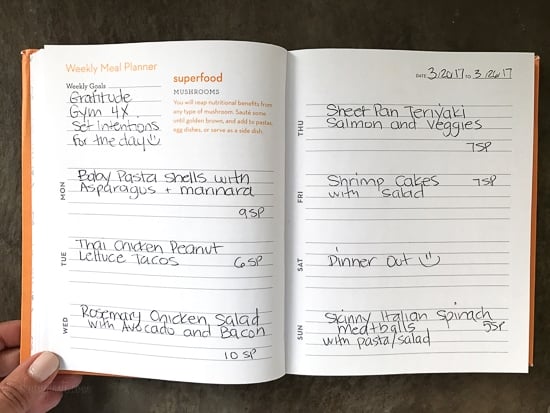 Weekly Meal Planner
Weekly Goals
Gratitude
Gym 4x
Set intentions
for the day
superfood
MUSHROOMS
You will reap nutritional benefits from
any type of mushroom. Sauté some
until golden brown, and add to pastas,
egg dishes, or serve as a side dish.
MON
Baby Pasta shells with
Asparagus + marinara
9 SP
TUE
Thai Chicken Peanut
Lettuce Tacos 6 SP
WED
Rosemary Chicken Salad
with Avocado and Bacon
10 SP
DATE 3/20/17 TO 3/26/17
THU
Sheet Pan Teriyaki
Salmon and Veggies
7SP
FRI
Shrimp Cakes 7SP
with Salad
SAT
Dinner Out
SUN
Skinny Italian Spinach
meatballs 5SP
with pasta/salad